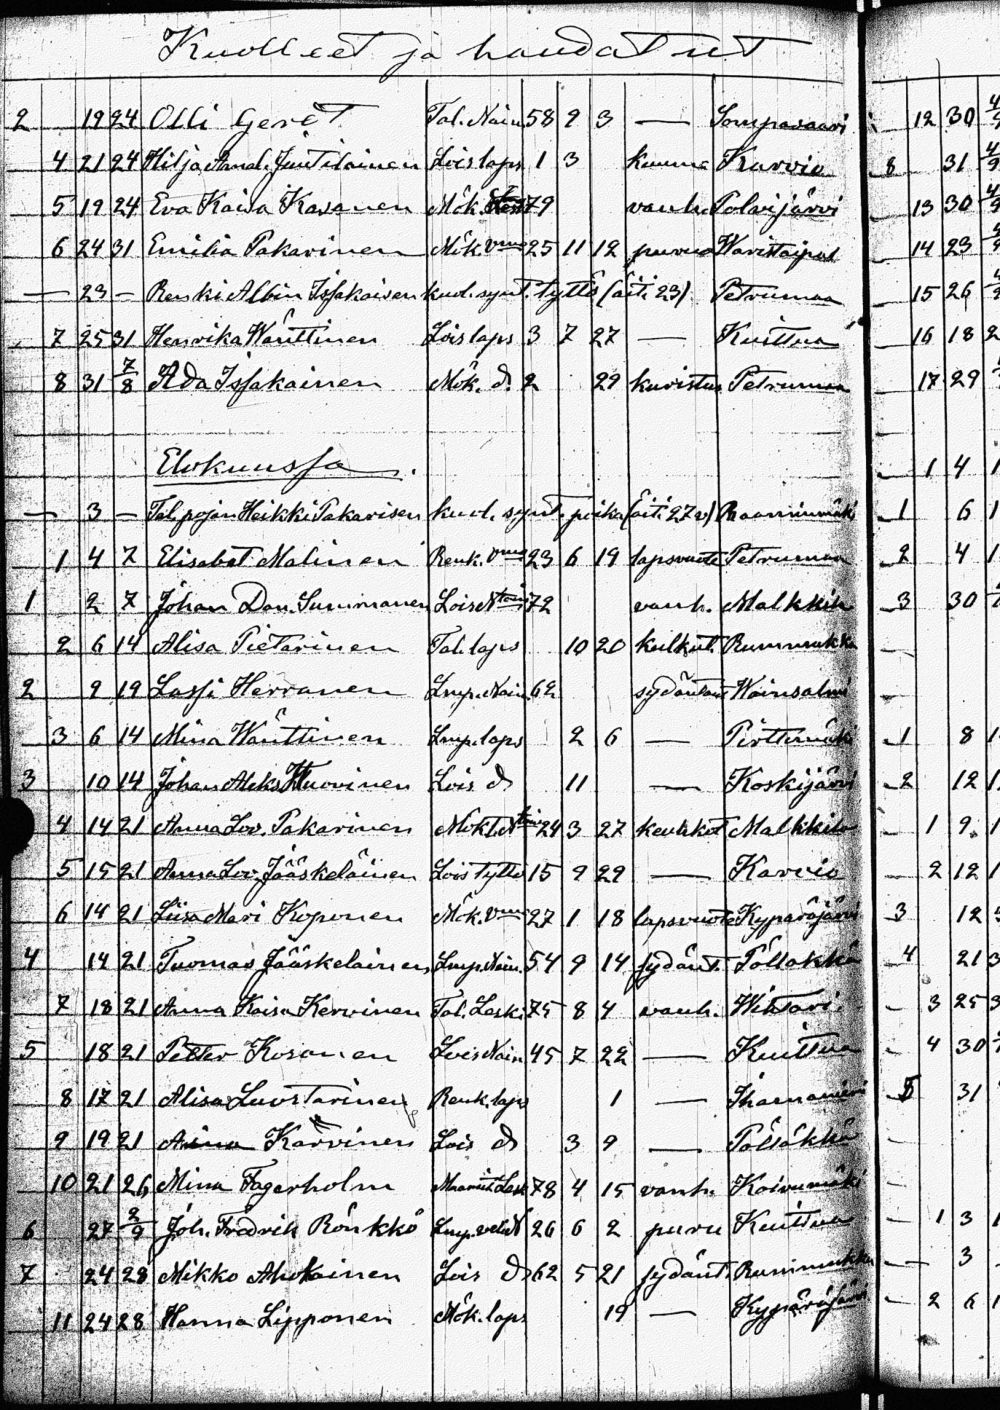 Kuolleet ja haudatut
2 19 24 Olli Geret Tal. Nain 58 2 3 — Sompasaari
4 21 24 Hilja Amal. Juutilainen Lois laps 1 3 Karvio
5 19 24 Eva Kaisa Kasanen Mök. 79 vanh. Polvijärvi
6 24 31 Emilia Pakarinen Mök. vmo 25 11 12
— 23 — Renki Albin Issakaisen kuol. synt. tyttö (äiti 23) Petrumaa
7 25 31 Henrika Wänttinen Lois laps 3 7 27 — Kuittua
8 31 7/8 Ada Issakainen Mök. d. 2 29 kuristus Petrumaa
Elokuussa
— 3 — Tal. pojan Heikki Pakarisen kuol. synt. poika (äiti 27 v)
1 4 7 Elisabet Malinen Renk. vmo 23 6 19 lapsvuote Petrumaa
1 2 7 Johan Dan. Summanen Lois 72 vanh. Malkkila
2 6 14 Alisa Pietarinen Tal. laps 10 20 Rummukka
2 9 19 Lassi Herranen Lmp. Nain 62 Wainsalmi
3 6 14 Mina Wänttinen Lmp. laps 2 6 — Pirttimäki
3 10 14 Johan Aleks Huovinen Lois d 11 — Koskijärvi
4 14 21 Anna Lov. Pakarinen 24 3 27 Malkkila
5 15 21 Anna Lov. Jääskeläinen Lois tyttö 15 9 29 — Karvio
6 14 21 Liisa Mari Koponen Mök. vmo 27 1 18 lapsvuote Kypäräjärvi
4 14 21 Tuomas Jääskeläinen Lmp. Nain. 54 9 14 sydänt. Pölläkkä
7 18 21 Anna Kaisa Kervinen Tal. Leski 75 8 4 vanh. Wihtari
5 18 21 Petter Kosonen Lois Nain 45 7 22 — Kuittua
8 17 21 Alisa Luostarinen Renk. laps 1 —
9 19 21 Karvinen Lois d 3 9 — Pölläkkä
10 21 26 Mina Fagerholm Lesk 78 4 15 vanh. Koivumäki
6 27 2/9 Joh. Fredrik Rönkkö Lmp. 26 6 2 puru Kuittua
7 24 28 Mikko Ahokainen Lois d 62 5 21 sydänt. Rummukka
11 24 28 Hanna Lipponen Mök. laps 19 — Kypäräjärvi
12 30
8 31
13 30
14 23
15 26
16 18 2
17 29
— 1 4 1
1 6 1
2 4 1
3 30
1 8 1
2 12 1
1 9 1
2 12 1
3 12
4 21 3
3 25 3
4 30
5 31
1 3 1
— 3
2 6 1